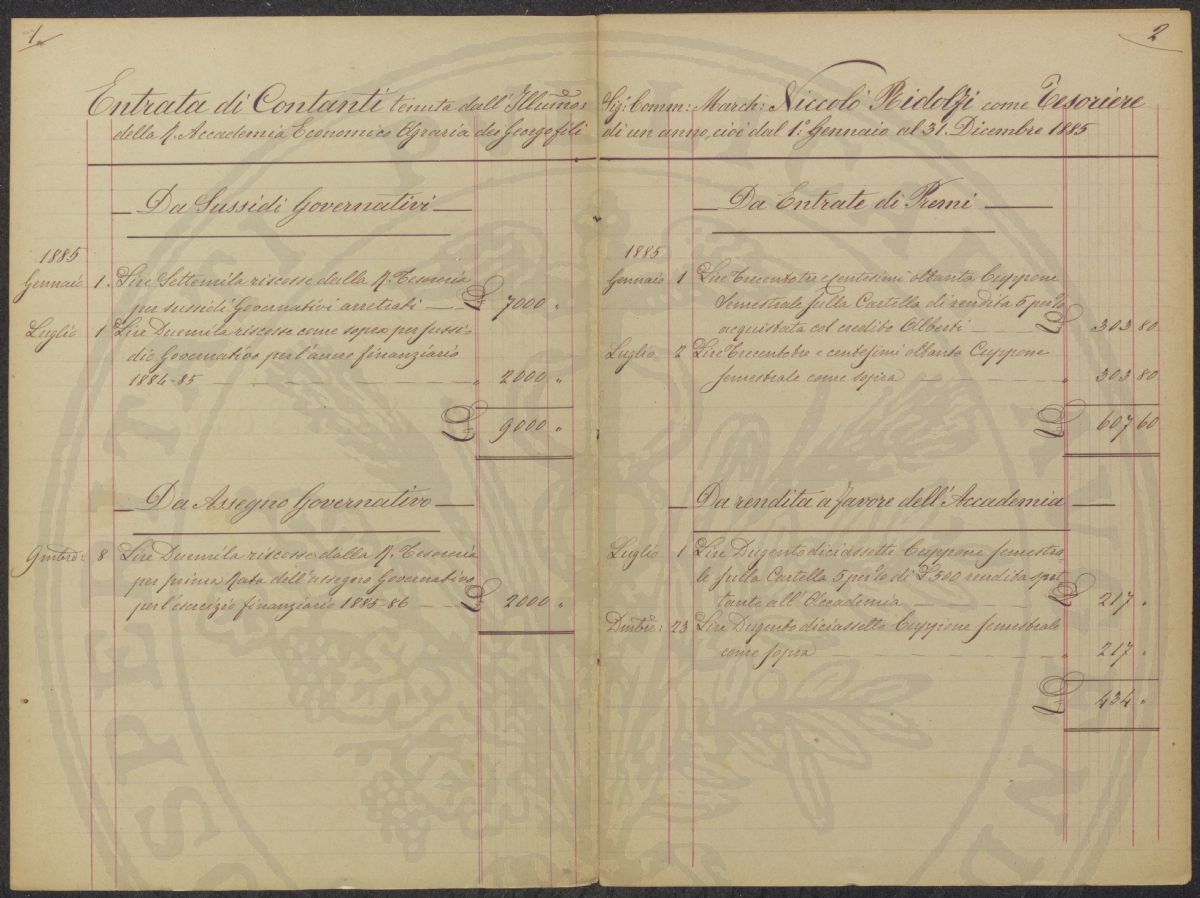 1
Entrata di Contanti tenuta dall'Illumo:
della R. Accademia Economico Agraria dei Georgofili
Da Sussidi Governativi
1885
Gennaio 1. Lire Settemila riscosse dalla R. Tesoreria
per sussidi Governativi arretrati £ 7000 "
Luglio 1 Lire Duemila riscosse come sopra per sussi-
dio Governativo per l'anno finanziario
1884-85 " 2000 "
£ 9000 "
Da Assegno Governativo
9mbre: 8 Lire Duemila riscosse dalla R. Tesoreria
per prima Rata dell'assegno Governativo
per l'esercizio finanziario 1885-86 £ 2000 "
2
Sig: Comm: March: Niccolò Ridolfi come Tesoriere
di un anno, cioè dal 1° Gennaio al 31. Dicembre 1885
Da Entrate di Premi
1885
Gennaio 1 Lire Trecentotre e centesimi ottanta Cuppone
Semestrale sulla Cartella di rendita 5 per %
acquistata col credito Alberti £ 303 80
Luglio 2 Lire Trecentotre e centesimi ottanta Cuppone
semestrale come sopra " 303 80
£ 607 60
Da rendita a favore dell'Accademia
Luglio 1 Lire Dugentodiciassette Cuppone semestra
le sulla Cartella 5 per % di £ 500 rendita spet
tante all'Accademia £ 217 "
Dmbre: 23 Lire Dugentodiciassette Cuppone semestrale
come sopra " 217 "
£ 434 "